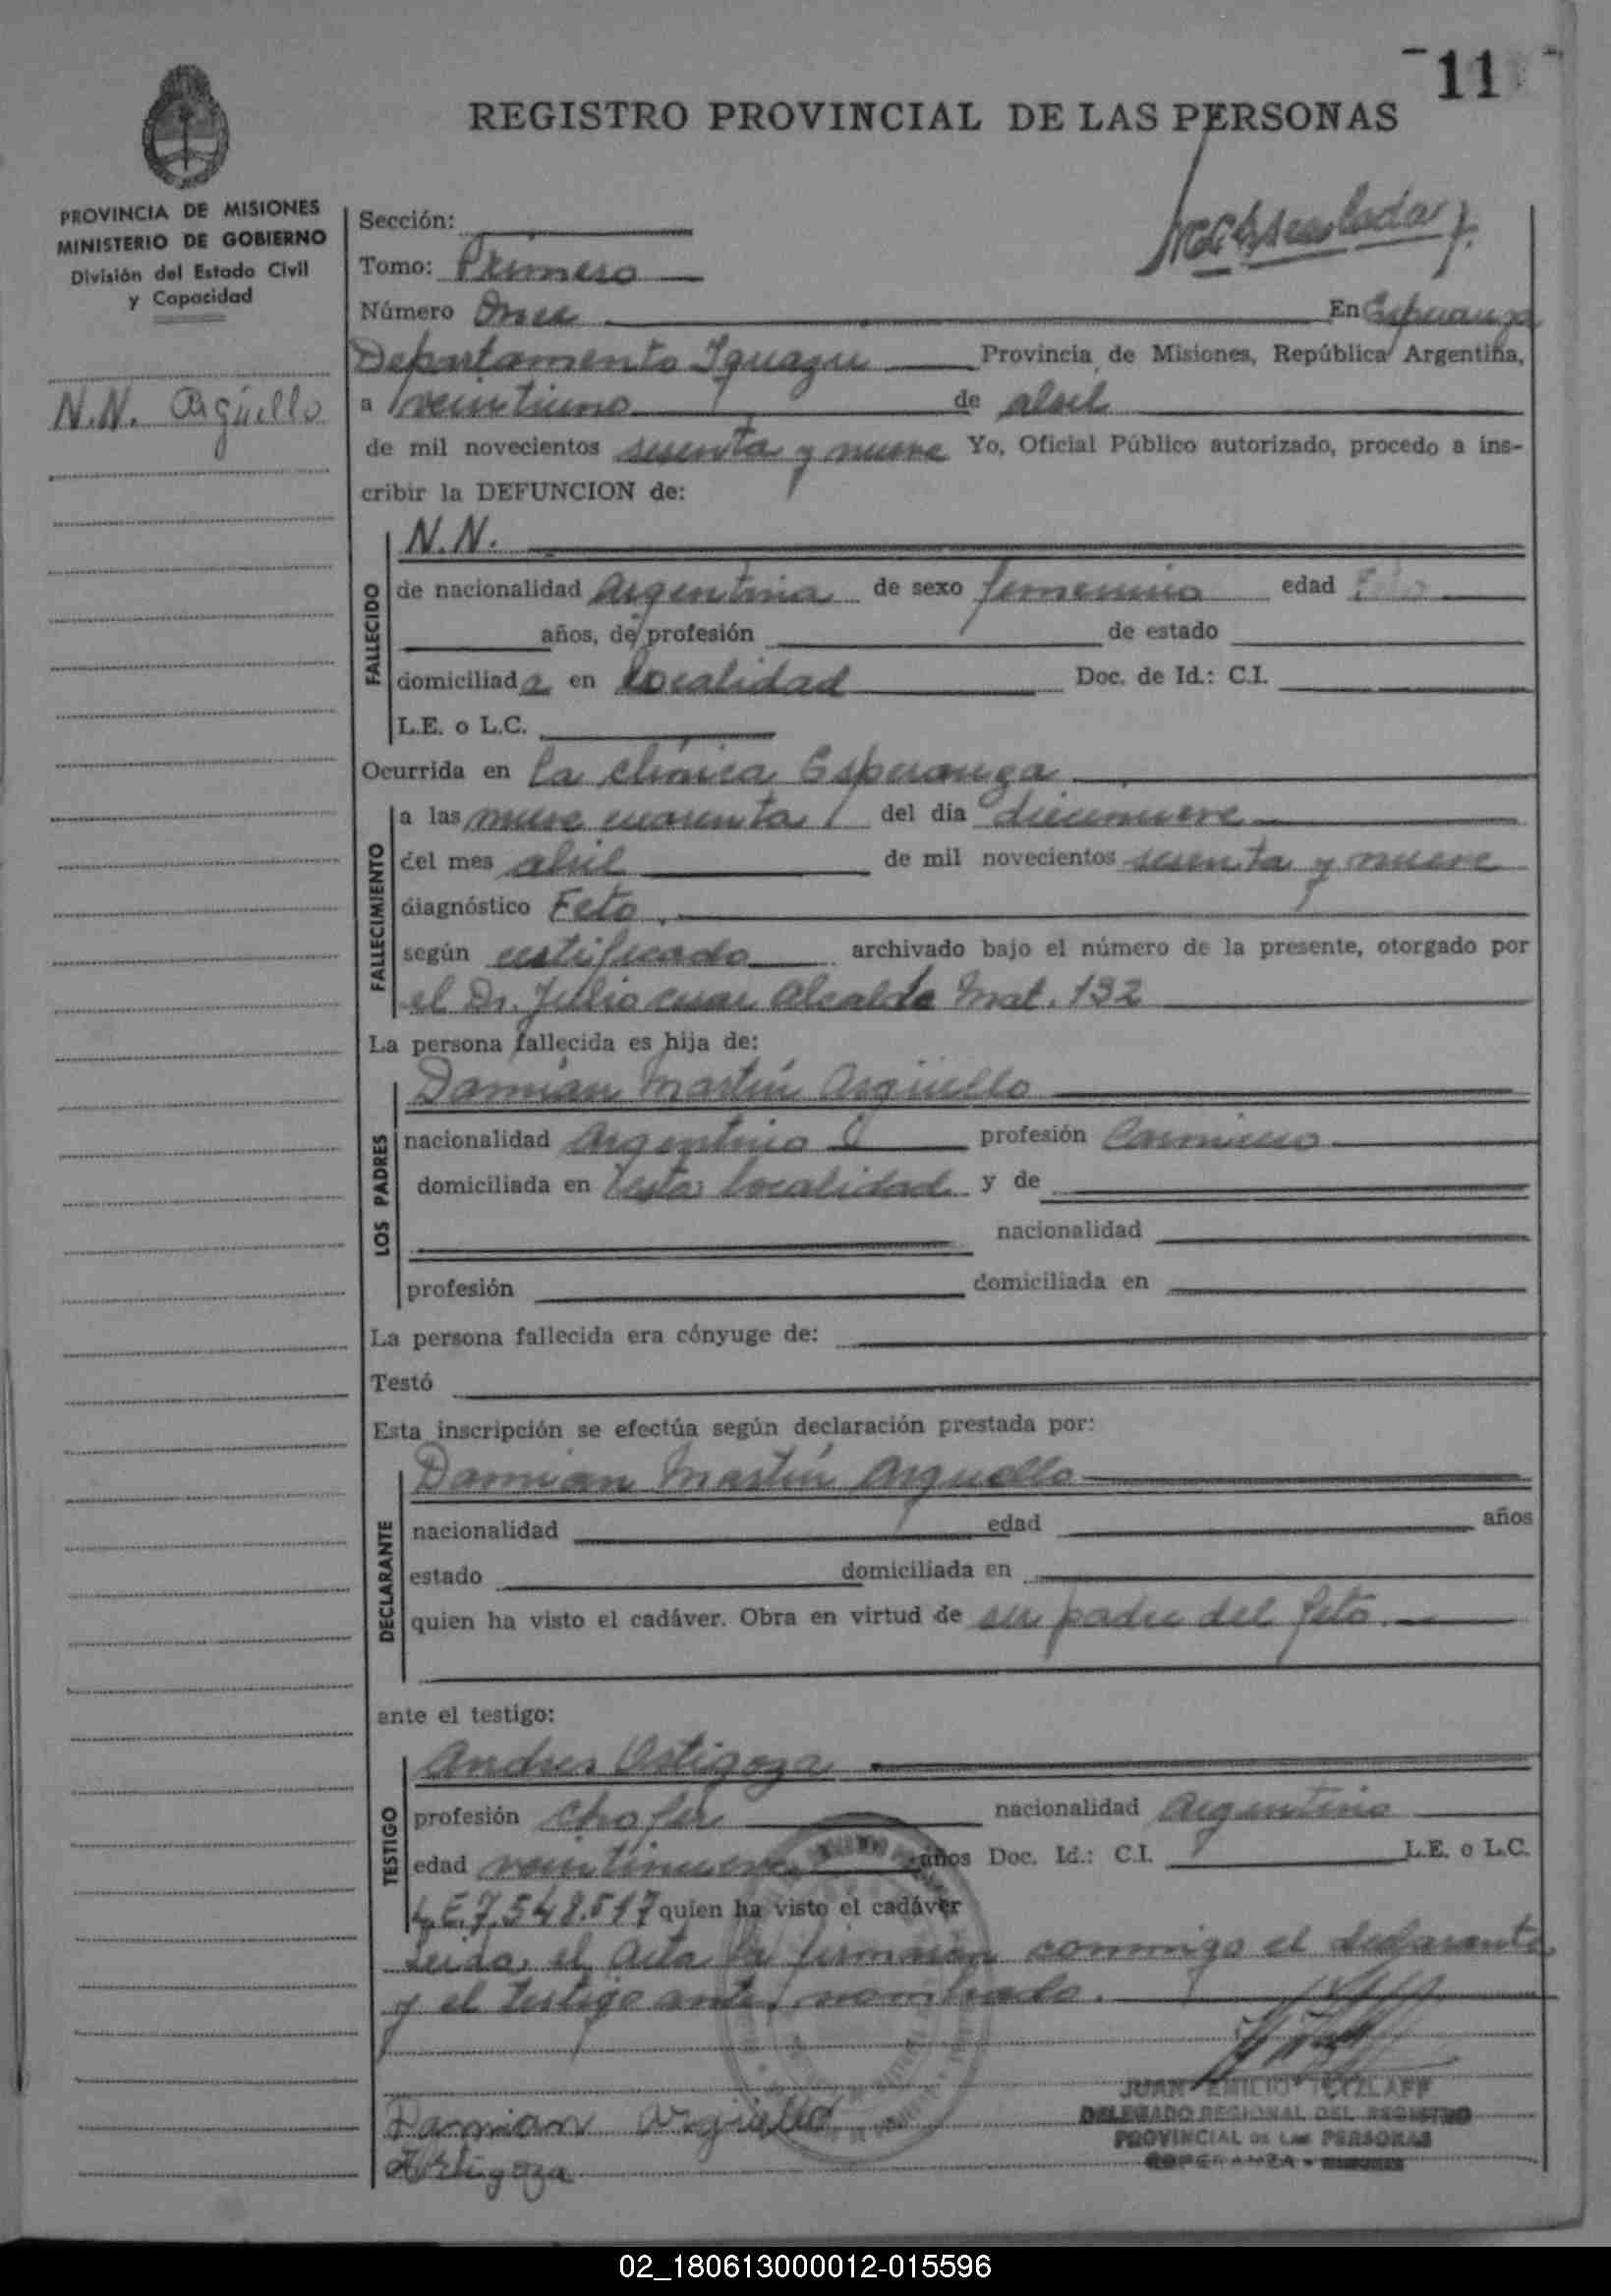 11
REGISTRO PROVINCIAL DE LAS PERSONAS
PROVINCIA DE MISIONES
MINISTERIO DE GOBIERNO
División del Estado Civil
y Capacidad
N.N. Argüello
Sección:
Tomo: Primero
Número Once En Esperanza
Departamento Iguazu Provincia de Misiones, República Argentina,
a veintiuno de abril
de mil novecientos sesenta y nueve Yo, Oficial Público autorizado, procedo a ins-
cribir la DEFUNCION de:
FALLECIDO
N.N.
de nacionalidad Argentina de sexo femenino edad Feto
años, de profesión de estado
domiciliada en localidad Doc. de Id.: C.I.
L.E. o L.C.
Ocurrida en La clínica Esperanza
FALLECIMIENTO
a las nueve cuarenta del día diecinueve
del mes abril de mil novecientos sesenta y nueve
diagnóstico Feto.
según certificado archivado bajo el número de la presente, otorgado por
el Dr. Julio cesar Alcalde Mat. 132
La persona fallecida es hija de:
LOS PADRES
Damián Martín Argüello
nacionalidad Argentino profesión
domiciliada en esta localidad y de
nacionalidad
profesión domiciliada en
La persona fallecida era cónyuge de:
Testó
Esta inscripción se efectúa según declaración prestada por:
DECLARANTE
Damián Martín Arguello
nacionalidad edad años
estado domiciliada en
quien ha visto el cadáver. Obra en virtud de ser padre del feto.
ante el testigo:
TESTIGO
Andres Ortigoza
profesión chofer nacionalidad Argentino
edad veintinueve años Doc. Id.: C.I. L.E. o L.C.
L.E.7.548.517 quien ha visto el cadáver
Leida el Acta la firmarón conmigo el declarante
y el testigo antes nombrado.
JUAN EMILIO TETZLAFF
DELEGADO REGIONAL DEL REGISTRO
PROVINCIAL DE LAS PERSONAS
ESPERANZA - MISIONES
Damian Argüello
Ortigoza
02_180613000012-015596